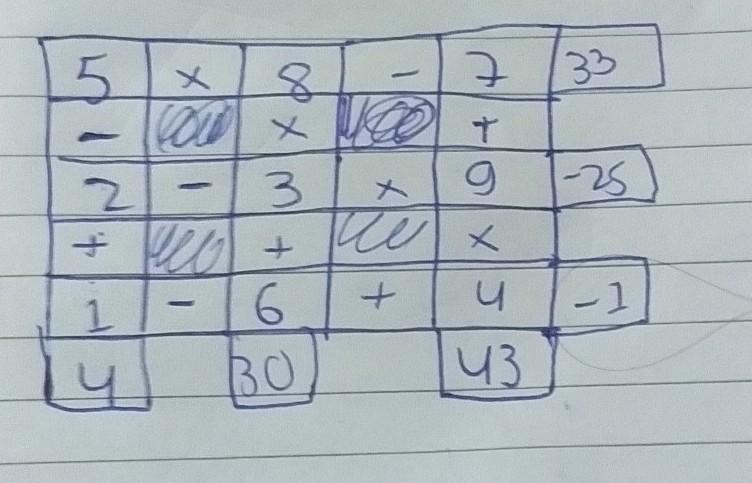 5 × 8 - 7 33
- × +
2 - 3 × 9 -25
+ + ×
1 - 6 + 4 -1
4 30 43